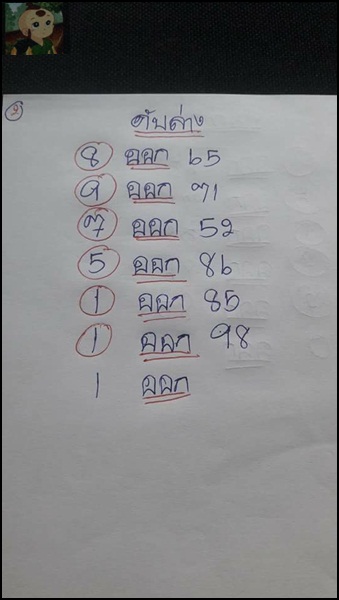 2
ดับล่าง
8 ออก 65
9 ออก 71
7 ออก 52
5 ออก 86
1 ออก 85
1 ออก 98
1 ออก